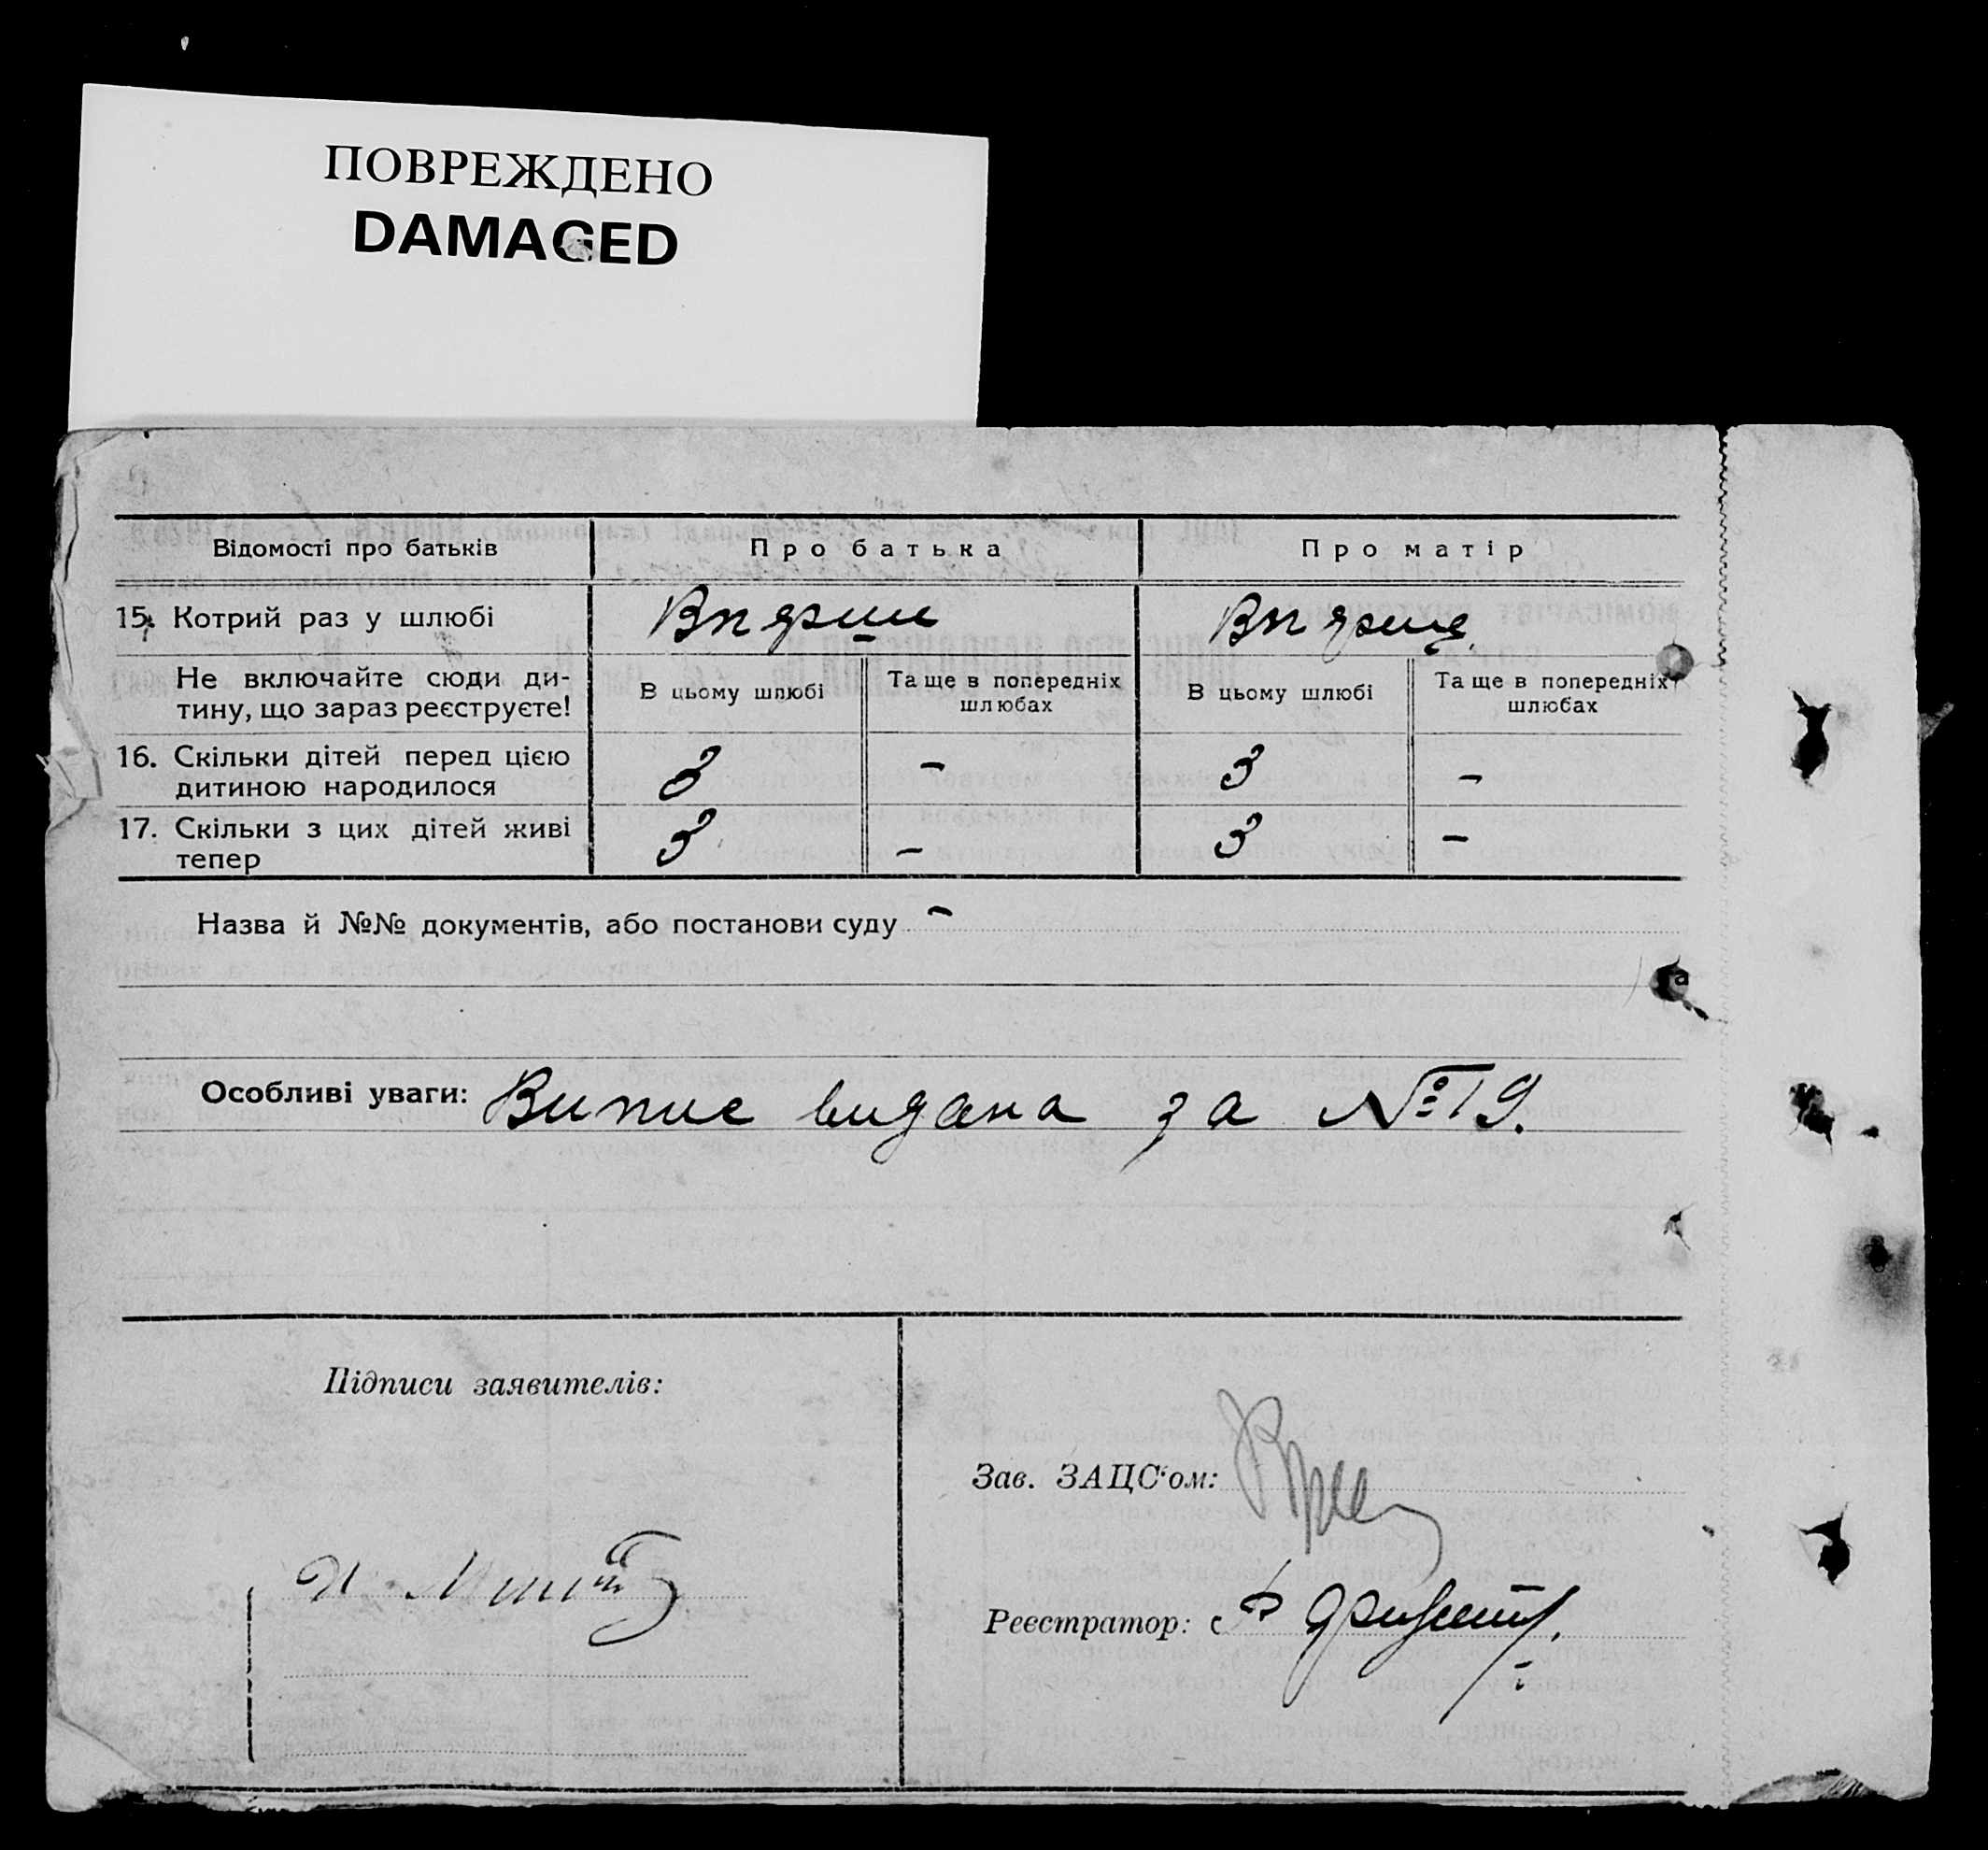 ПОВРЕЖДЕНО
DAMAGED
Відомості про батьків Про батька Про матір
15. Котрий раз у шлюбі Вперше Вперше
Не включайте сюди ди-
тину, що зараз реєструєте!
В цьому шлюбі Та ще в попередніх шлюбах В цьому шлюбі Та ще в попередніх шлюбах
16. Скільки дітей перед цією
дитиною народилося 3 - 3 -
17. Скільки з цих дітей живі
тепер 3 - 3 -
Назва й №№ документів, або постанови суду -
Особливі уваги: Випис видана за № 19.
Підписи заявителів:
Зав. ЗАЦС'ом:
Реєстратор: